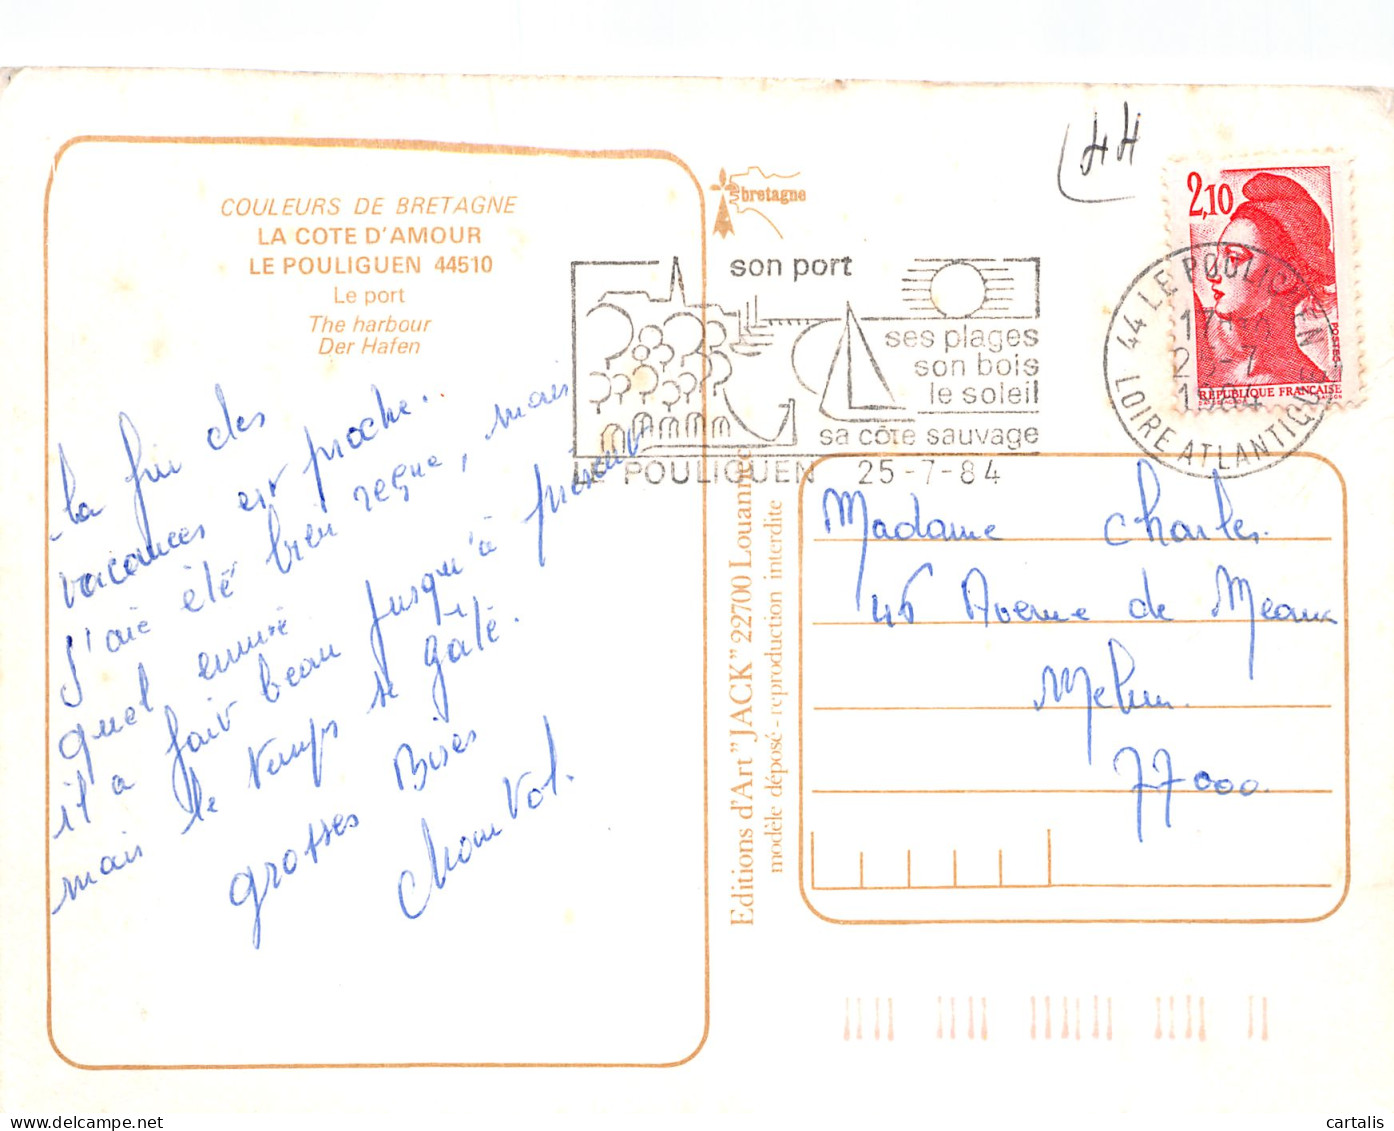 COULEURS DE BRETAGNE
LA COTE D'AMOUR
LE POULIGUEN 44510
Le port
The harbour
Der Hafen
La fin des
vacances est proche..
J'ai été bien reçue, mais
quel ennui
il a fait beau jusqu'à présent
mais le temps se gâte.
grosses Bises
bretagne
44
son port
ses plages
son bois
le soleil
sa côte sauvage
LE POULIGUEN 25-7-84
2,10
POSTES
REPUBLIQUE FRANÇAISE
44 LE POULIGUEN
17
25-7
1984
LOIRE ATLANTIQUE
Editions d'Art "JACK" 22700 Louannec
modèle déposé - reproduction interdite
Madame Charles.
46 Avenue de Meaux
Melun.
77000.
© cartalis
delcampe.net